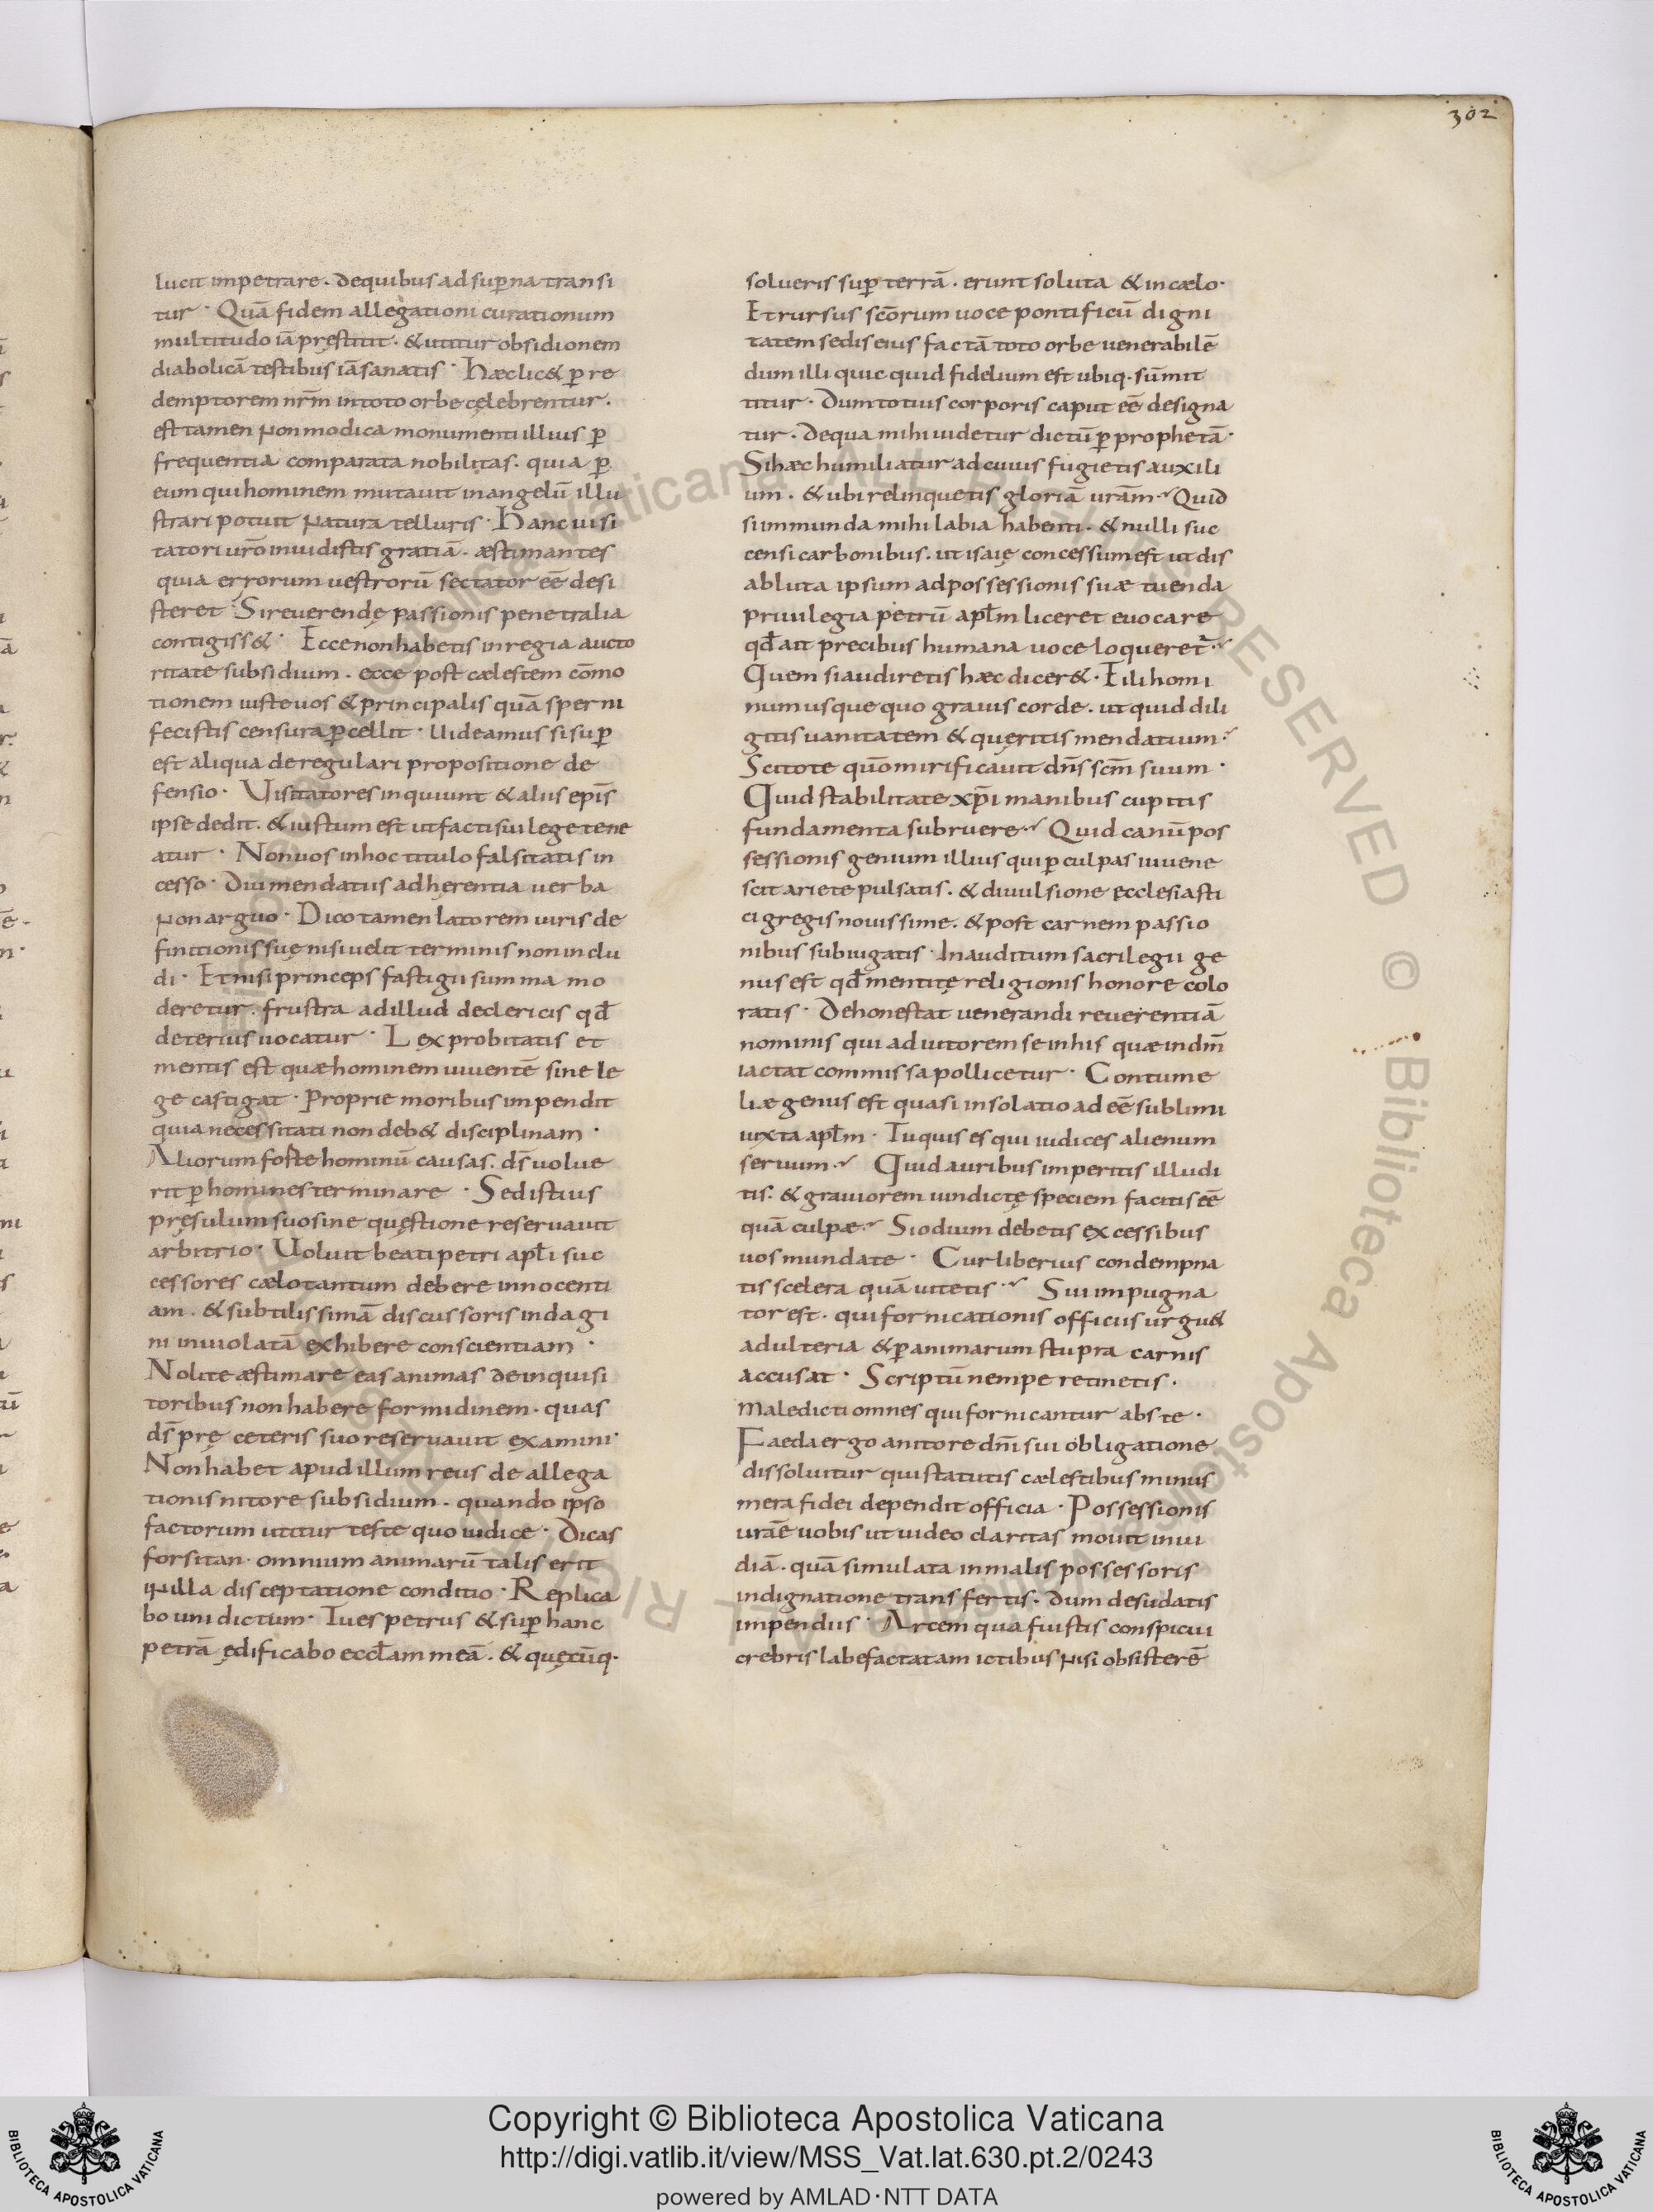 302
lucit impetrare. dequibus ad sup̄na transi
tur. Quā fidem allegationi curationum
multitudo iā pręstitit. & utitur obsidionem
diabolicā testibus iā sanatis. Hæc lic& p̄ re
demptorem nr̄m in toto orbe cęlebrentur.
est tamen non modica monumenti illius p̄
frequentia comparata nobilitas. quia p̄
eum qui hominem mutauit in angelū illu
strari potuit natura telluris. Hanc uisi
tatori ur̄o inuidistis gratiā. æstimantes
quia errorum uestrorū sectator eē desi
steret. Si reuerendę passionis penetralia
contigiss&. Ecce non habetis in regia aucto
ritate subsidium. ecce post cælestem cōmo
tionem iuste uos & principalis quā sperni
fecistis censura p̄cellit. Uideamus si sup̄
est aliqua de regulari propositione de
fensio. Uisitatores inquiunt & aliis ep̄is
ipse dedit. & iustum est ut factis sui lege tene
atur. Non uos in hoc titulo falsitatis in
cesso. Diu mendatiis adherentia uerba
non arguo. Dico tamen latorem iuris de
finitionis suę nisi uelit terminis non inclu
di. Et nisi princeps fastigii summa mo
deretur. frustra ad illud declericis qd̄
deterius uocatur. Lex probitatis et
mentis est quæ hominem uiuentē sine le
ge castigat. Proprie moribus impendit
quia necessitati non deb& disciplinam.
Aliorum foste hominū causas. d̄s uolue
rit p̄ homines terminare. Sed istius
pręsulum suo sine quęstione reseruauit
arbitrio. Uoluit beati petri apl̄i suc
cessores cælo tantum debere innocenti
am. & subtilissimā discussoris indagi
ni inuiolatā exhibere conscientiam.
Nolite æstimare eas animas de inquisi
toribus non habere formidinem. quas
d̄s prę ceteris suo reseruauit examini.
Non habet apud illum reus de allega
tionis nitore subsidium. quando ipso
factorum utitur teste quo iudice. Dicas
forsitan. omnium animarū talis erit
in illa disceptatione conditio. Replica
bo uni dictum. Tu es petrus & sup̄ hanc
petrā ędificabo eccl̄am meā. & quęcūq.
solueris sup̄ terrā. erunt soluta & in cælo.
Et rursus sc̄orum uoce pontificū digni
tatem sedis eius factā toto orbe uenerabilē
dum illi quicquid fidelium est ubiq. sūmit
titur. Dum totius corporis caput eē designa
tur. De qua mihi uidetur dictū p̄ prophetā.
Si hæc humiliatur ad cuius fugietis auxili
um. & ubi relinquetis gloriā ur̄am. Quid
si inmunda mihi labia habenti. & nulli suc
censi carbonibus. ut isaię concessum est ut dis
abluta ipsum ad possessionis suæ tuenda
priuilegia petrū apl̄m liceret euocare
qd̄ ait precibus humana uoce loqueret̄.
Quem si audiretis hæc dicer&. Filii homi
num usque quo grauis corde. ut quid dili
gitis uanitatem & quęritis mendatium.
Scitote quō mirificauit dn̄s sc̄m suum.
Quid stabilitate xp̄i manibus cupitis
fundamenta subruere. Quid canū pos
sessionis genium illius qui p̄ culpas iuuene
scit ariete pulsatis. & diuulsione ecclesiasti
ci gregis nouissime. & post carnem passio
nibus subiugatis. Inauditum sacrilegii ge
nus est qd̄ mentitę religionis honore colo
ratis. Dehonestat uenerandi reuerentiā
nominis qui adiutorem se in his quæ in dn̄m
iactat commissa pollicetur. Contume
liæ genus est quasi insolatio ad eē sublimi
iuxta apl̄m. Tu quis es qui iudices alienum
seruum. Quid auribus imperitis illudi
tis. & grauiorem uindictę speciem facitis eē
quā culpæ. Si odium debetis excessibus
uos mundate. Cur liberius condempna
tis scelera quā uitetis. Sui impugna
tor est. qui fornicationis officiis urgu&
adulteria & p̄ animarum stupra carnis
accusat. Scriptū nempe retinetis.
Maledicti omnes qui fornicantur abs te.
Faeda ergo a nitore dn̄i sui obligatione
dissoluitur qui statutis cælestibus minus
mera fidei dependit officia. Possessionis
ur̄aē uobis ut uideo claritas mouit inui
diā. quā simulata in malis possessoris
indignatione transfertis. Dum desudatis
impendiis. Arcem qua fuistis conspicui
crebris labefactatam ictibus nisi obsisterē
Copyright © Biblioteca Apostolica Vaticana
http://digi.vatlib.it/view/MSS_Vat.lat.630.pt.2/0243
powered by AMLAD·NTT DATA
BIBLIOTECA APOSTOLICA VATICANA
BIBLIOTECA APOSTOLICA VATICANA